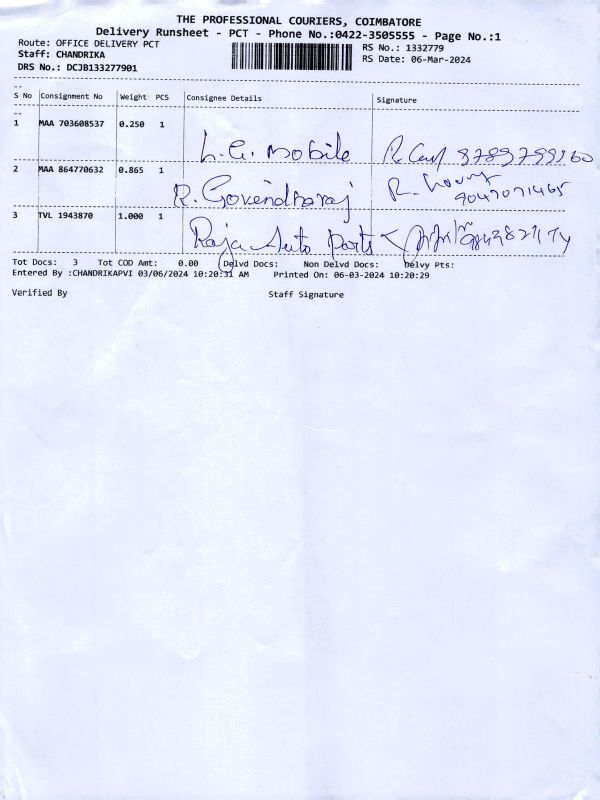 THE PROFESSIONAL COURIERS, COIMBATORE
Delivery Runsheet - PCT - Phone No.:0422-3505555 - Page No.:1
Route: OFFICE DELIVERY PCT
Staff: CHANDRIKA
DRS No.: DCJB133277901
RS No.: 1332779
RS Date: 06-Mar-2024
S No Consignment No Weight PCS Consignee Details Signature
1 MAA 703608537 0.250 1 L.G. mobile
2 MAA 864770632 0.865 1 R. Govendharaj R. 9047071465
3 TVL 1943870 1.000 1 Raja Auto parts
Tot Docs: 3 Tot COD Amt: 0.00 Delvd Docs: Non Delvd Docs: Delvy Pts:
Entered By :CHANDRIKAPVI 03/06/2024 10:20:31 AM Printed On: 06-03-2024 10:20:29
Verified By Staff Signature